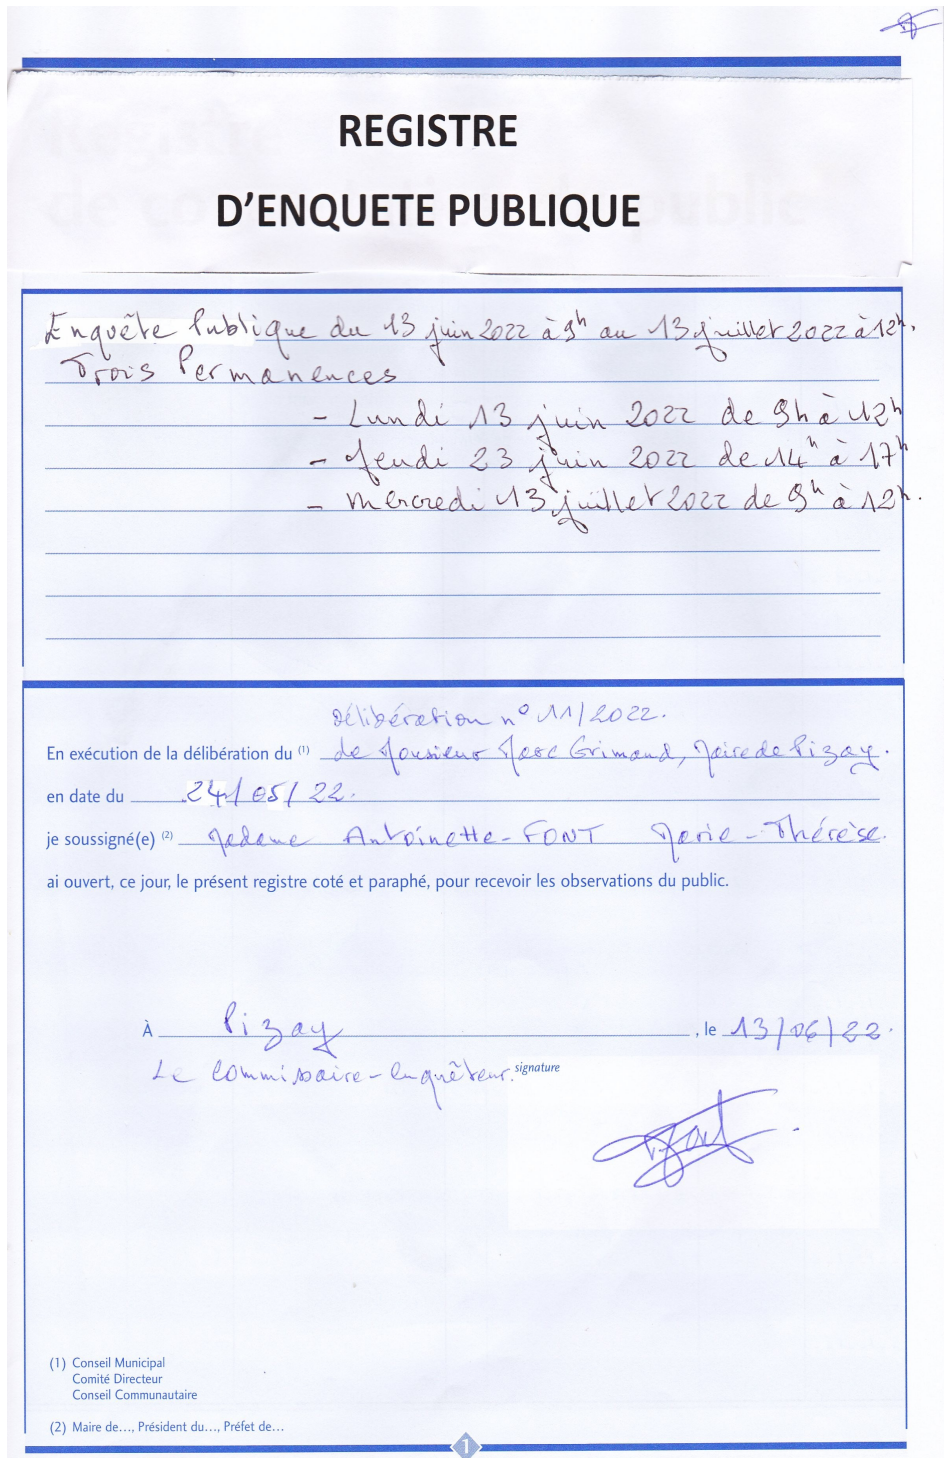 REGISTRE
D'ENQUETE PUBLIQUE
Enquête Publique du 13 juin 2022 à 9h au 13 juillet 2022 à 12h.
Trois Permanences
- Lundi 13 juin 2022 de 9h à 12h
- Jeudi 23 juin 2022 de 14h à 17h
- Mercredi 13 juillet 2022 de 9h à 12h.
Délibération n° 11/2022.
En exécution de la délibération du (1) de Monsieur Marc Grimand, Maire de Pizay.
en date du 24/05/22.
je soussigné(e) (2) Madame Antoinette-FONT Marie-Thérèse.
ai ouvert, ce jour, le présent registre coté et paraphé, pour recevoir les observations du public.
À Pizay, le 13/06/22.
Le Commissaire-Enquêteur. signature
(1) Conseil Municipal
Comité Directeur
Conseil Communautaire
(2) Maire de..., Président du..., Préfet de...
1